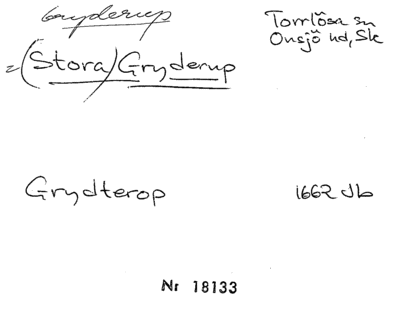 Gryderup
Torrlösa sn
Onsjö hd, Sk
=(Stora) Gryderup
Grydterop
1662 Jb
Nr 18133